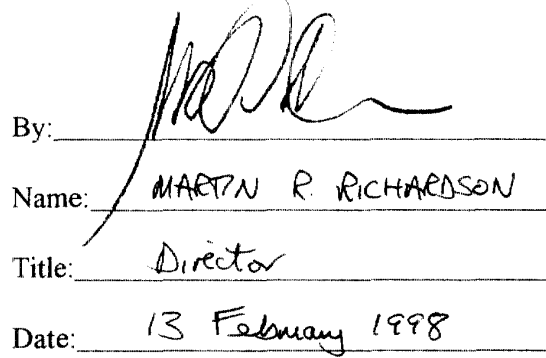 By:
Name: MARTIN R. RICHARDSON
Title: Director
Date: 13 February 1998